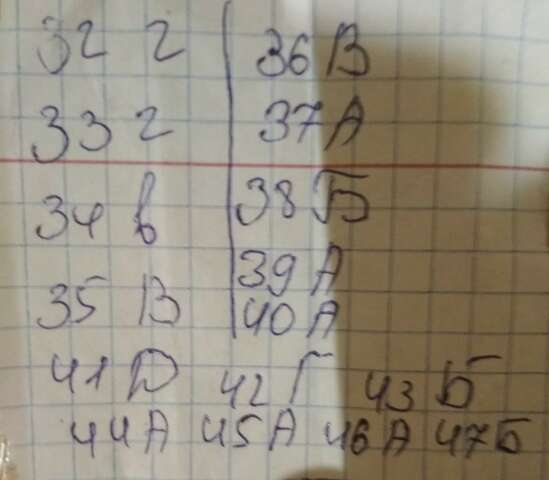 32 г
33 г
34 в
35 В
36 В
37 А
38 Б
39 А
40 А
41 D 42 Г 43 Б
44 А 45 А 46 А 47 Б